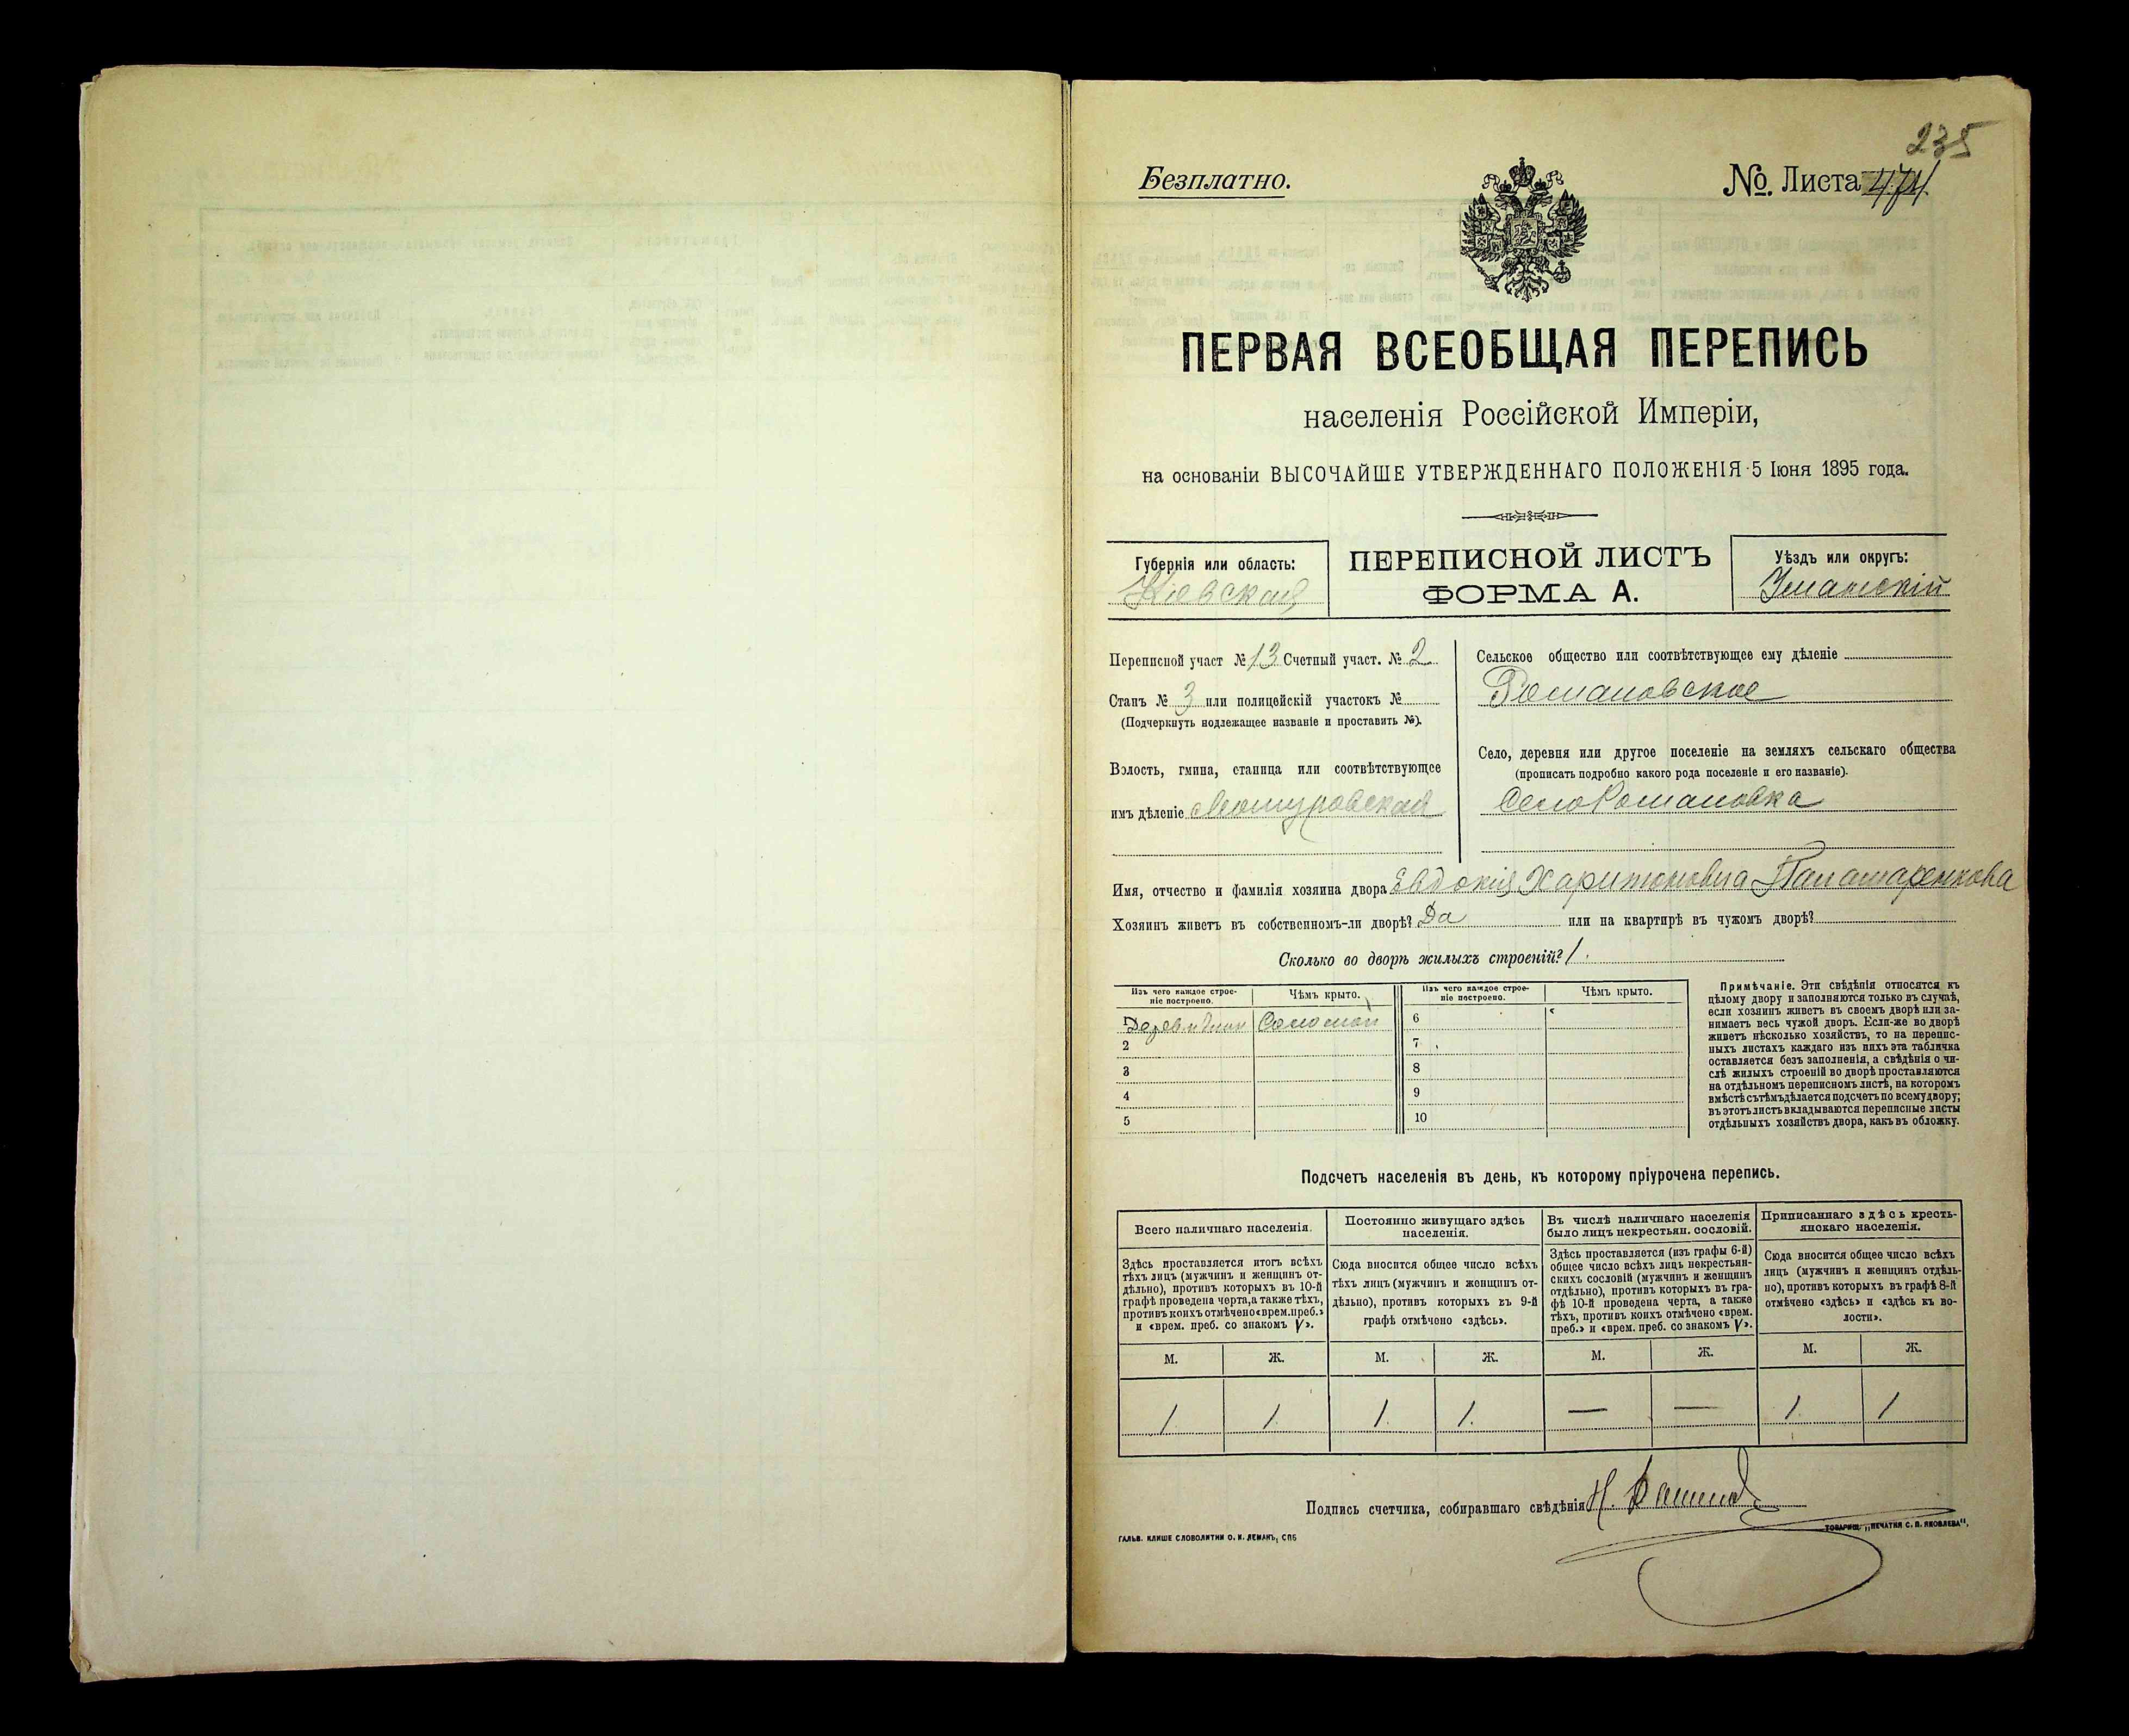 235
Безплатно.
№. Листа 474.
ПЕРВАЯ ВСЕОБЩАЯ ПЕРЕПИСЬ
населенія Россійской Имперіи,
на основаніи ВЫСОЧАЙШЕ УТВЕРЖДЕННАГО ПОЛОЖЕНІЯ 5 Іюня 1895 года.
Губернія или область:
Кіевская
ПЕРЕПИСНОЙ ЛИСТЪ
ФОРМА А.
Уѣздъ или округъ:
Уманскій
Переписной участ № 13 Счетный участ. № 2
Станъ № 3 или полицейскій участокъ №
(Подчеркнуть подлежащее названіе и проставить №).
Волость, гмина, станица или соотвѣтствующее
имъ дѣленіе
Сельское общество или соотвѣтствующее ему дѣленіе
Романовское
Село, деревня или другое поселеніе на земляхъ сельскаго общества
(прописать подробно какого рода поселеніе и его названіе).
Село Романовка
Имя, отчество и фамилія хозяина двора Евдокія Харитоновна
Хозяинъ живетъ въ собственномъ-ли дворѣ? Да или на квартирѣ въ чужомъ дворѣ?
Сколько во дворѣ жилыхъ строеній? 1.
Изъ чего каждое строе-
ніе построено.
Чѣмъ крыто.
Изъ чего каждое строе-
ніе построено.
Чѣмъ крыто.
1 Соломой
2
3
4
5
6
7
8
9
10
Примѣчаніе. Эти свѣдѣнія относятся къ
цѣлому двору и заполняются только въ случаѣ,
если хозяинъ живетъ въ своемъ дворѣ или за-
нимаетъ весь чужой дворъ. Если-же во дворѣ
живетъ нѣсколько хозяйствъ, то на перепис-
ныхъ листахъ каждаго изъ нихъ эта табличка
оставляется безъ заполненія, а свѣдѣнія о чи-
слѣ жилыхъ строеній во дворѣ проставляются
на отдѣльномъ переписномъ листѣ, на которомъ
вмѣстѣ съ тѣмъ дѣлается подсчетъ по всему двору;
въ этотъ листъ вкладываются переписные листы
отдѣльныхъ хозяйствъ двора, какъ въ обложку.
Подсчетъ населенія въ день, къ которому пріурочена перепись.
Всего наличнаго населенія.
Здѣсь проставляется итогъ всѣхъ
тѣхъ лицъ (мужчинъ и женщинъ от-
дѣльно), противъ которыхъ въ 10-й
графѣ проведена черта, а также тѣхъ,
противъ коихъ отмѣчено «врем. преб.»
и «врем. преб. со знакомъ V».
Постоянно живущаго здѣсь
населенія.
Сюда вносится общее число всѣхъ
тѣхъ лицъ (мужчинъ и женщинъ от-
дѣльно), противъ которыхъ въ 9-й
графѣ отмѣчено «здѣсь».
Въ числѣ наличнаго населенія
было лицъ некрестьян. сословій.
Здѣсь проставляется (изъ графы 6-й)
общее число всѣхъ лицъ некрестьян-
скихъ сословій (мужчинъ и женщинъ
отдѣльно), противъ которыхъ въ гра-
фѣ 10-й проведена черта, а также
тѣхъ, противъ коихъ отмѣчено «врем.
преб.» и «врем. преб. со знакомъ V».
Приписаннаго здѣсь кресть-
янскаго населенія.
Сюда вносится общее число всѣхъ
лицъ (мужчинъ и женщинъ отдѣль-
но), противъ которыхъ въ графѣ 8-й
отмѣчено «здѣсь» и «здѣсь къ во-
лости».
М. Ж. М. Ж. М. Ж. М. Ж.
1 1 1 1. — — 1 1
Подпись счетчика, собиравшаго свѣдѣнія
ГАЛЬВ. КЛИШЕ СЛОВОЛИТНИ О. И. ЛЕМАНЪ, СПБ
ТОВАРИЩ. „ПЕЧАТНЯ С. П. ЯКОВЛЕВА".